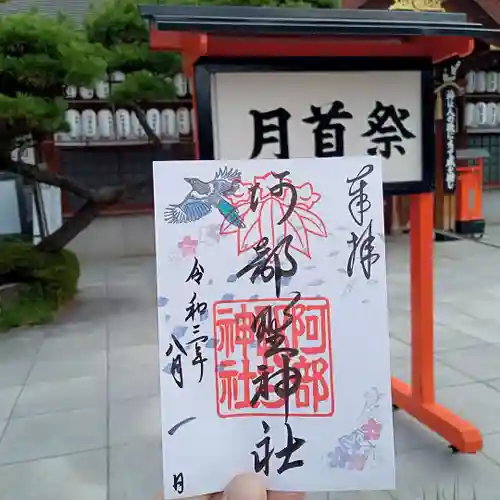 月首祭
奉拝
阿部野神社
阿部野神社
令和三年
八月一日